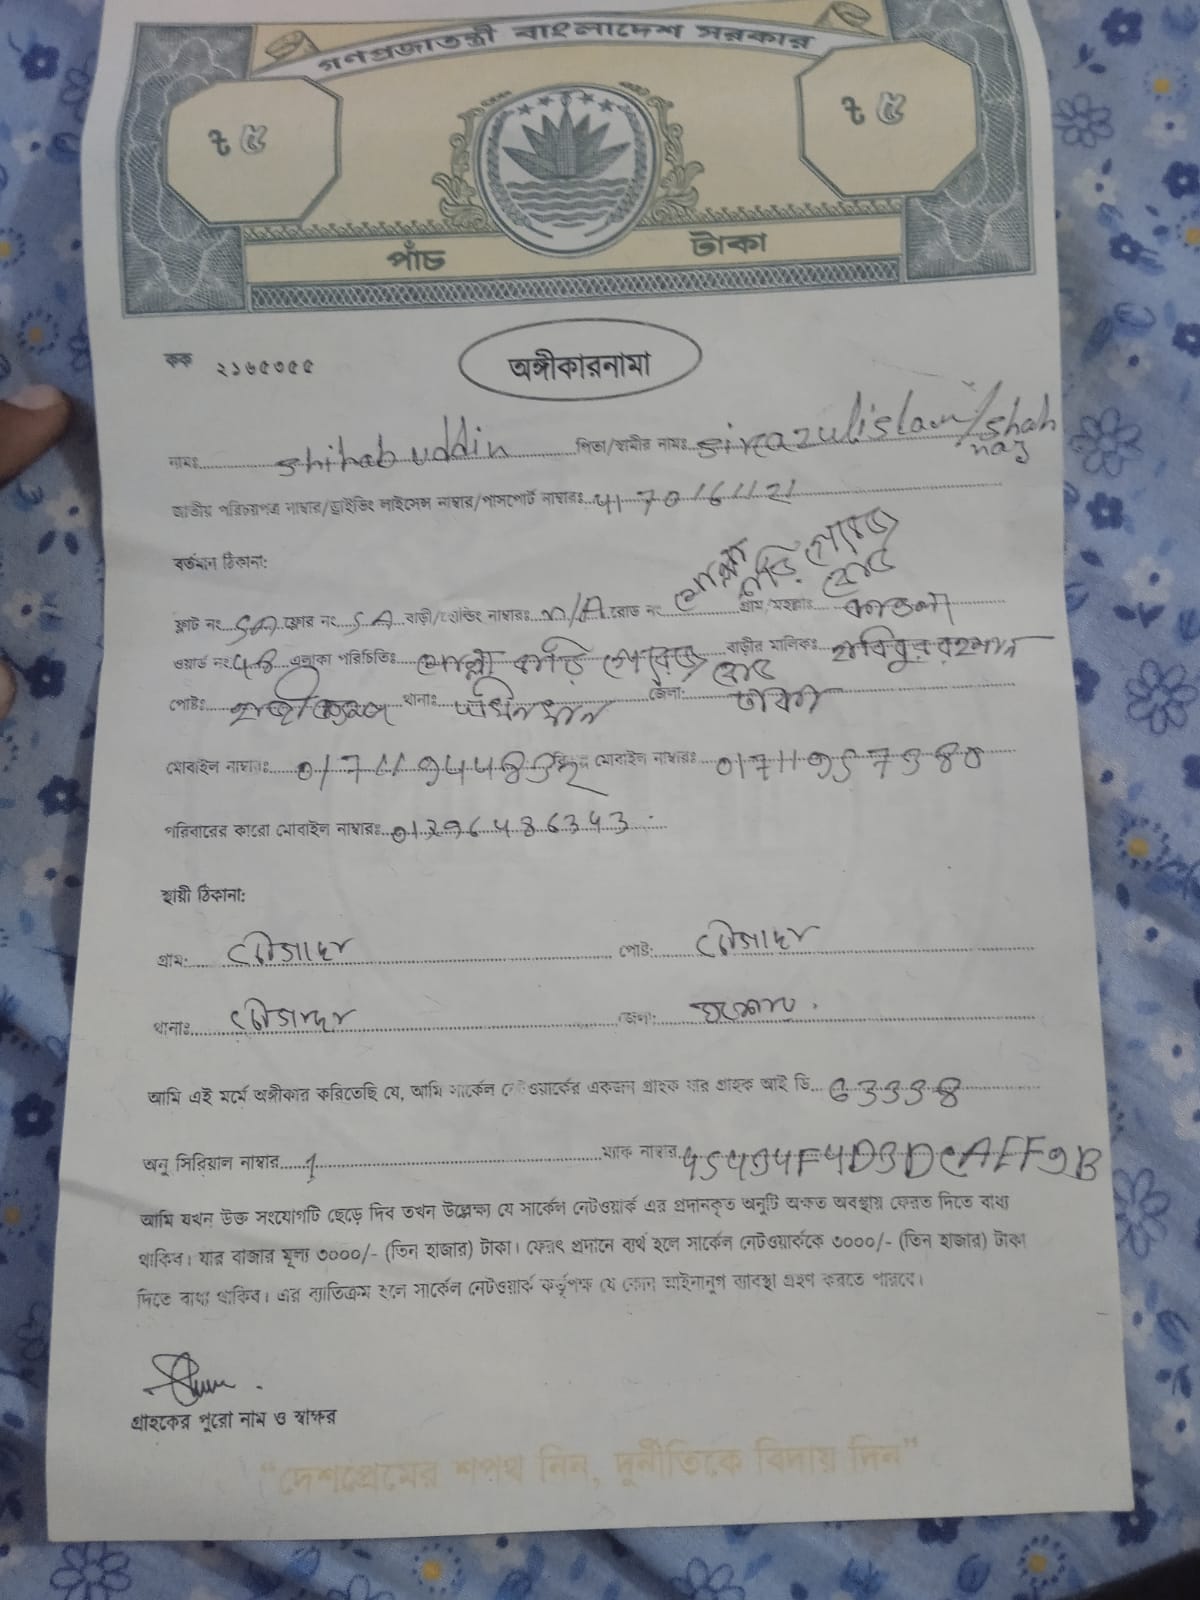 গণপ্রজাতন্ত্রী বাংলাদেশ সরকার
৳ ৫ ৳ ৫
পাঁচ টাকা
কক ২১৬৫৩৫৫
অঙ্গীকারনামা
নামঃ shihab uddin পিতা/স্বামীর নামঃ sirazulislam/shah
naz
জাতীয় পরিচয়পত্র নাম্বার/ড্রাইভিং লাইসেন্স নাম্বার/পাসপোর্ট নাম্বারঃ
বর্তমান ঠিকানা:
ফ্লাট নং 5A ফ্লোর নং 5A বাড়ী/হোল্ডিং নাম্বারঃ N/A রোড নং মোল্লা বাড়ি রোড গ্রাম/মহল্লাঃ কাওলা
ওয়ার্ড নং এলাকা পরিচিতিঃ মোল্লা বাড়ি রোড বাড়ীর মালিকঃ হাবিবুর রহমান
পোষ্টঃ থানাঃ জেলা: ঢাকা
মোবাইল নাম্বারঃ মোবাইল নাম্বারঃ
পরিবারের কারো মোবাইল নাম্বারঃ 01296486343
স্থায়ী ঠিকানা:
গ্রাম: পোষ্ট:
থানাঃ জেলা:
আমি এই মর্মে অঙ্গীকার করিতেছি যে, আমি সার্কেল নেটওয়ার্কের একজন গ্রাহক যার গ্রাহক আই ডি 63338
অনু সিরিয়াল নাম্বার 1 ম্যাক নাম্বার
আমি যখন উক্ত সংযোগটি ছেড়ে দিব তখন উল্লেক্ষ্য যে সার্কেল নেটওয়ার্ক এর প্রদানকৃত অনুটি অক্ষত অবস্থায় ফেরত দিতে বাধ্য
থাকিব। যার বাজার মূল্য ৩০০০/- (তিন হাজার) টাকা। ফেরৎ প্রদানে ব্যর্থ হলে সার্কেল নেটওয়ার্ককে ৩০০০/- (তিন হাজার) টাকা
দিতে বাধ্য থাকিব। এর ব্যতিক্রম হলে সার্কেল নেটওয়ার্ক কর্তৃপক্ষ যে কোন আইনানুগ ব্যবস্থা গ্রহণ করতে পারবে।
গ্রাহকের পুরো নাম ও স্বাক্ষর
“দেশপ্রেমের শপথ নিন, দুর্নীতিকে বিদায় দিন”